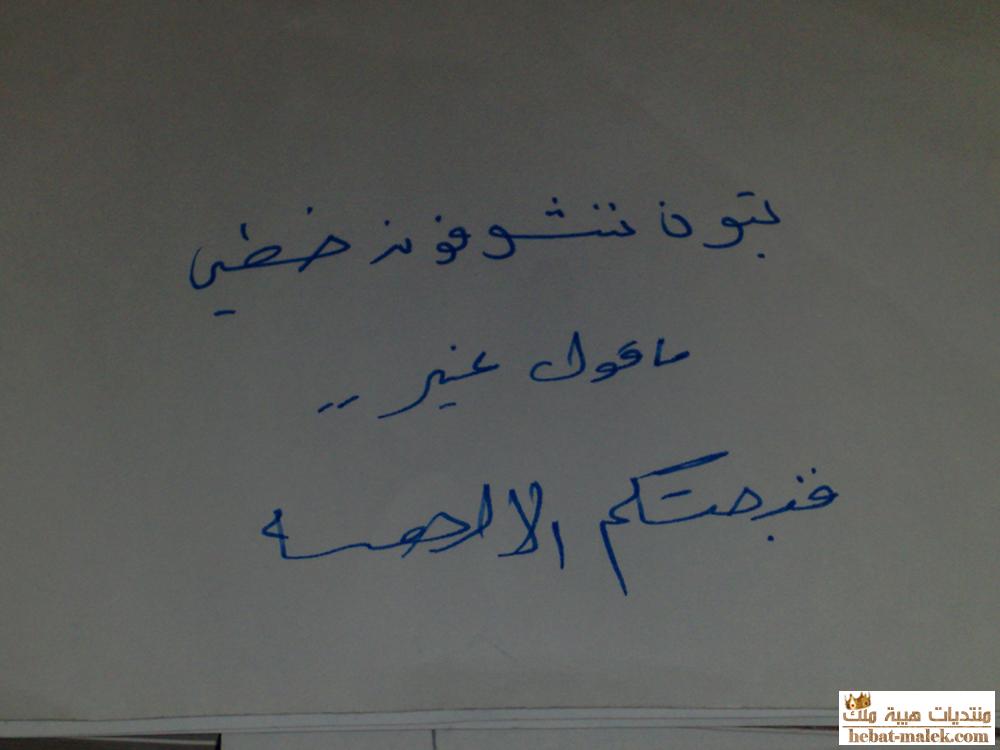 بتون تشوفون خطي
ماقول غير ..
فزحتكم الا ارحمه
منتديات هيبة ملك
hebat-malek.com